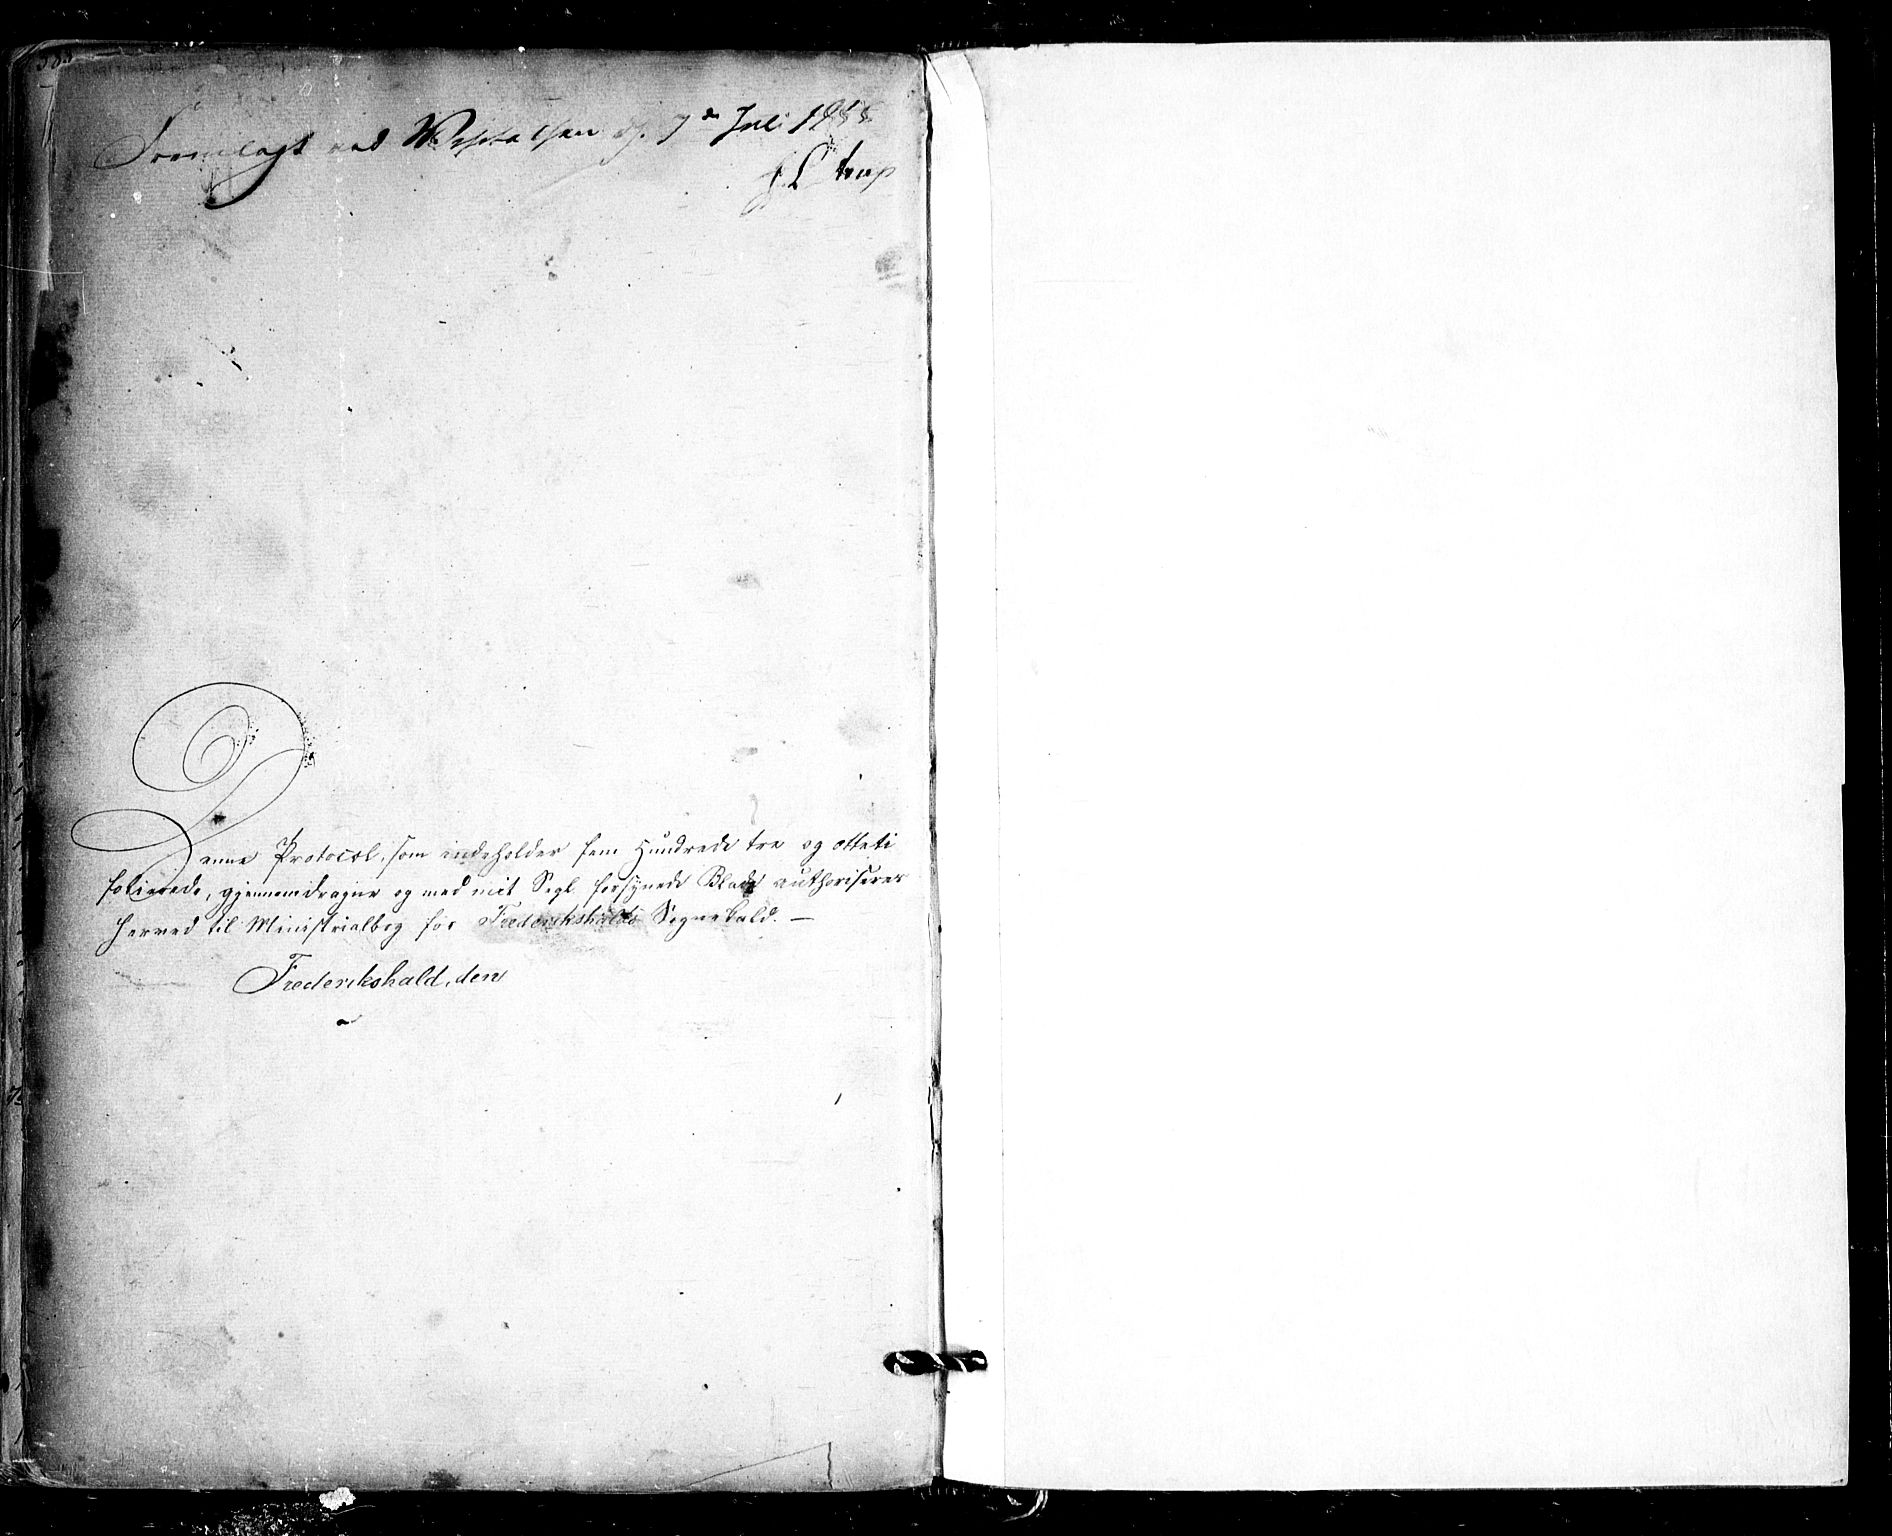 Fremlagt ved Visitatsen d. 7de Juli 1855
Denne Protocol, som indeholder fem Hundrede tre og otteti
folierede, gjennemdragne og med mit Segl forsynede Blade authoriseres
herved til Ministrialbog for Frederikshalds Sognekald. —
Frederikshald, den